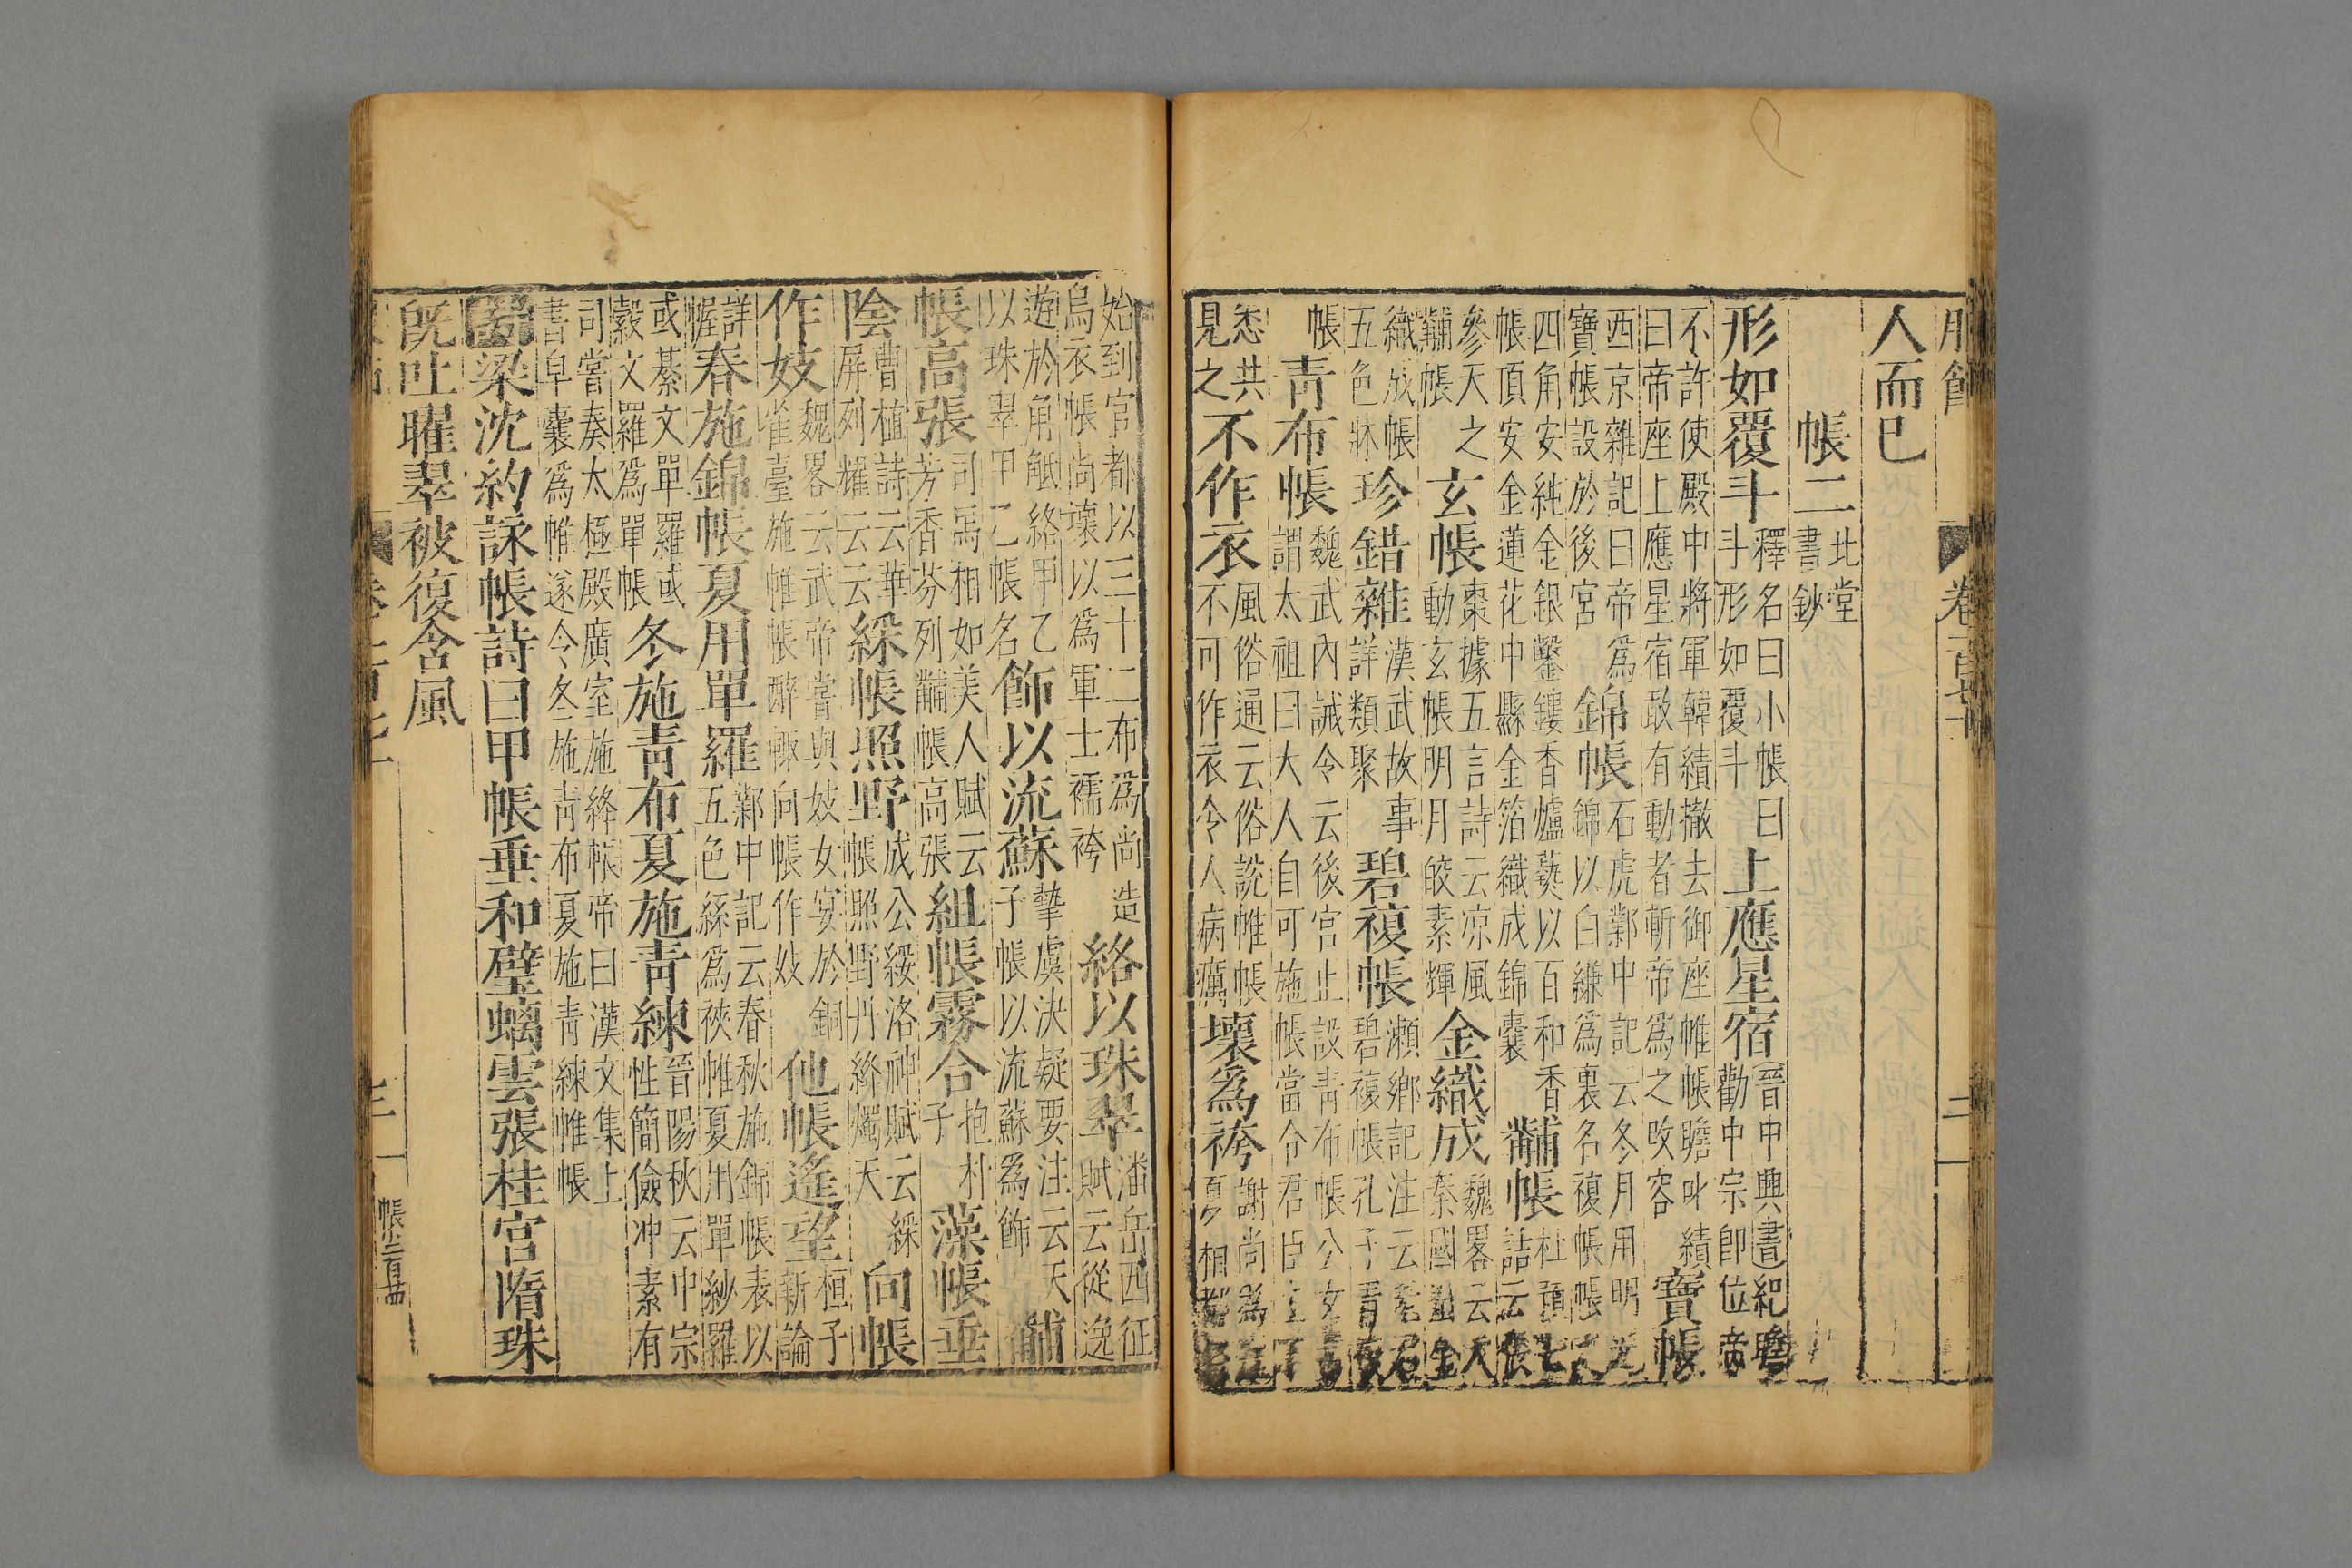 服飾 卷一百廿 二
人而已
帳二 北堂書鈔
形如覆斗 釋名曰小帳曰斗形如覆斗 上應星宿 晉中興書紀瞻勸中宗即位帝
不許使殿中將軍韓績撤去御座帷帳瞻叱績曰帝座上應星宿敢有動者斬帝為之改容 寶帳
西京雜記曰帝為寶帳設於後宮 錦帳 石虎鄴中記云冬月用明錦以白縑為裏名複帳帳
四角安純金銀鑿鏤香爐爇以百和香帳頂安金蓮花中縣金箔織成錦囊 黼帳 杜頭詰云
參天之黼帳 玄帳 棗據五言詩云凉風動玄帳帳明月皎素輝 金織成 魏畧云大秦國金
織成帳五色牀 珍錯雜 漢武故事詳類聚 碧複帳 瀨鄉記注云老君碧複帳孔子青
帳 青布帳 魏武內誡令云後宮止設青布帳公女謂太祖曰大人自可施帳當令君臣
悉共見之 不作衣 風俗通云俗說帷帳不可作衣令人病癘 壞為袴 謝尚為
始到官都以三十二布為尚造烏衣帳尚壞以為軍士襦袴 絡以珠翠 潘岳西征賦云縱逸
遊於角觝絡甲乙以珠翠甲乙帳名 飾以流蘇 摯虞決疑要注云天子帳以流蘇為飾 黼
帳高張 司馬相如美人賦云芳香芬列黼帳高張 組帳霧合 抱朴子 藻帳垂
陰 曹植詩云華屏列耀云云 綵帳照野 成公綏洛神賦云綵帳照野丹絳燭天 向帳
作妓 魏畧云武帝嘗與妓女宴於銅雀臺施帷帳醉輙向帳作妓 他帳遙望 桓子新論
詳幄 春施錦帳夏用單羅 鄴中記云春秋施錦帳表以五色絲為裌帷夏用單紗羅
或綦文單羅或縠文羅為單帳 冬施青布夏施青練 晉陽秋云中宗性簡儉冲素有
司嘗奏太極殿廣室施絳帳帝曰漢文集上書皁囊為帷遂令冬施青布夏施青練帷帳
梁沈約詠帳詩曰甲帳垂和璧螭雲張桂宮隋珠
既吐曜翠被復含風
卷一百廿 三